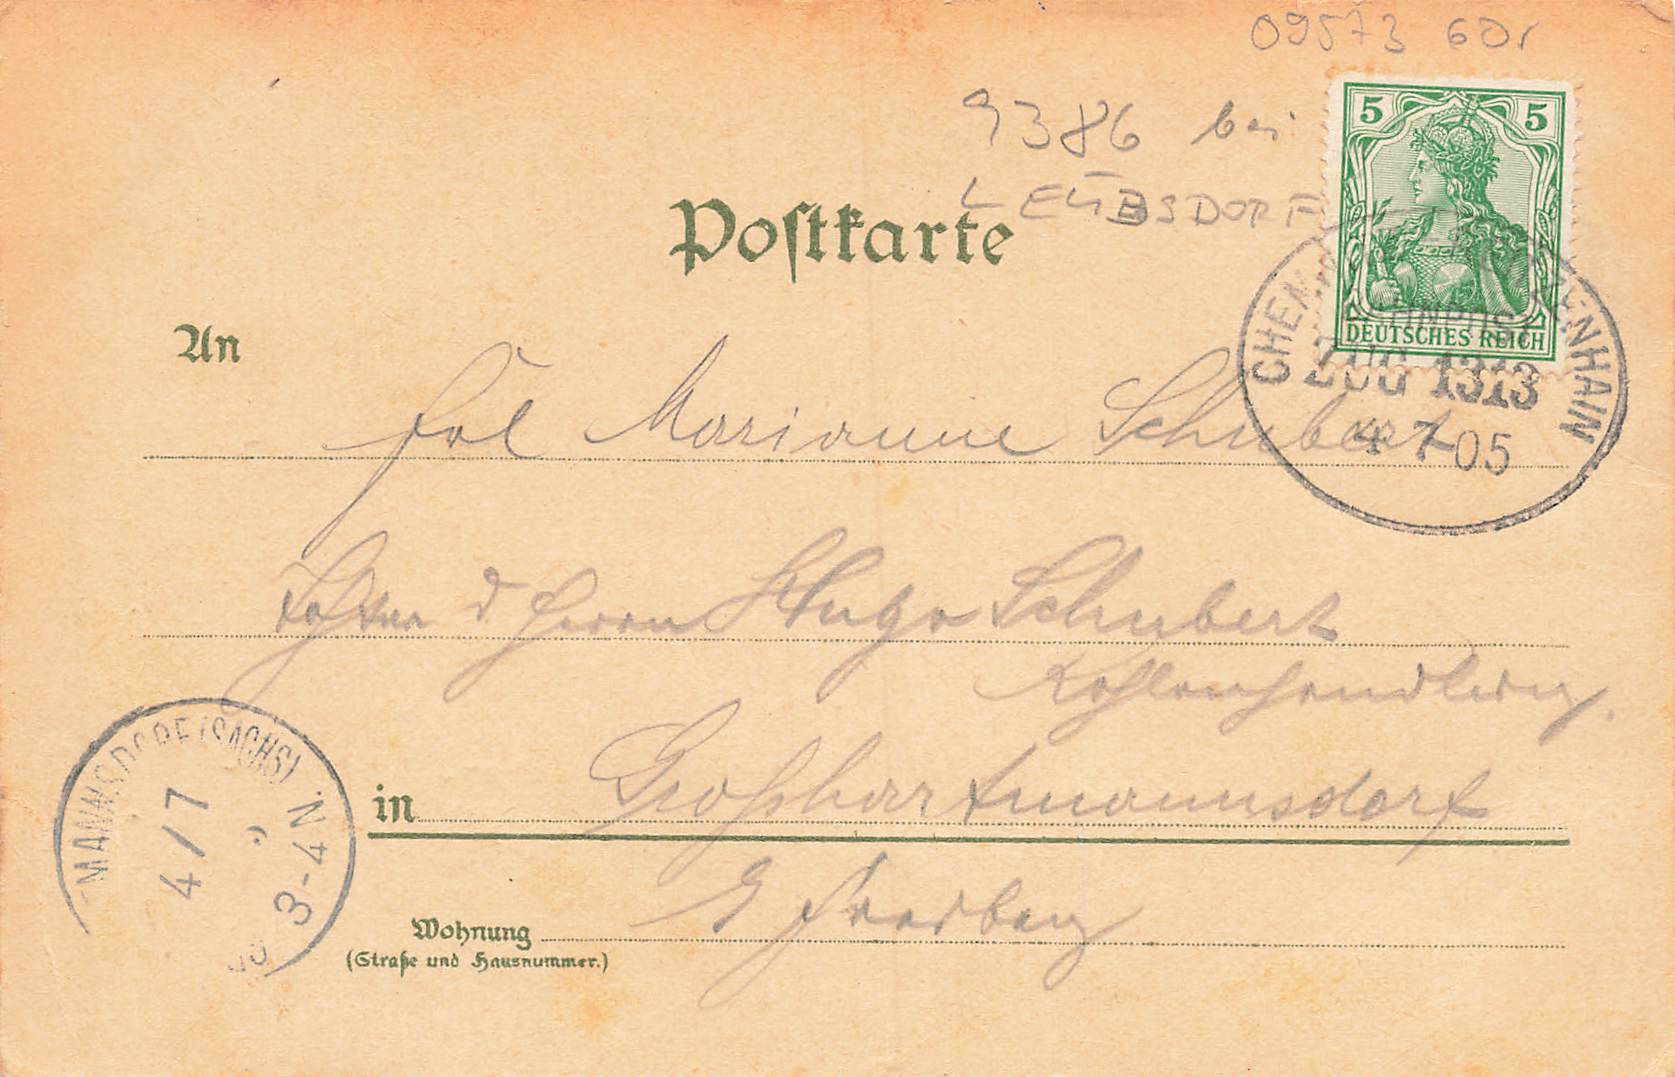 09573 60,
9386 bei
LEUBSDORF
5 5
DEUTSCHES REICH
BAHNPOST
ZUG 1313
4 7 05
Postkarte
An
Frl Marianne Schubert
d Herrn Hugo Schubert
Kohlenhandlung.
in Großhartmannsdorf
Freiberg
Wohnung
(Straße und Hausnummer.)
MANNSDORF (SACHS)
4/7
3-4 N.